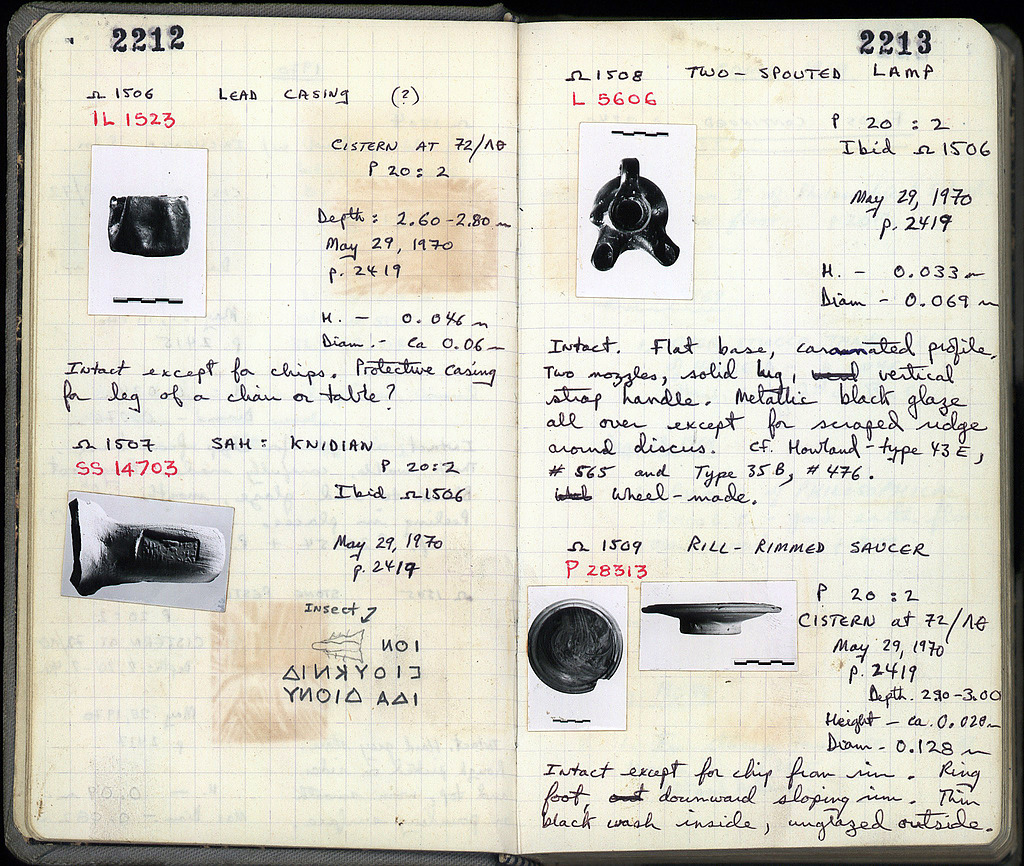 2212
Ω 1506 LEAD CASING (?)
IL 1523
CISTERN AT 72/ΛΘ
P 20 : 2
Depth : 2.60 - 2.80 m
May 29, 1970
p. 2419
H. - 0.046 m
Diam. - ca 0.06 m
Intact except for chips. Protective casing
for leg of a chair or table?
Ω 1507 SAH : KNIDIAN
SS 14703
P 20 : 2
Ibid Ω 1506
May 29, 1970
p. 2419
Insect
ИΟΙ
ΔΙИΚΥΟΙΣ
ΥИΟΙΔ ΑΔΙ
2213
Ω 1508 TWO - SPOUTED LAMP
L 5606
P 20 : 2
Ibid Ω 1506
May 29, 1970
p. 2419
H. - 0.033 m
Diam - 0.069 m
Intact. Flat base, carinated profile.
Two nozzles, solid lug, vertical
strap handle. Metallic black glaze
all over except for scraped ridge
around discus. Cf. Howland - type 43 E,
# 565 and Type 35 B, # 476.
Wheel - made.
Ω 1509 RILL - RIMMED SAUCER
P 28313
P 20 : 2
CISTERN at 72/ΛΘ
May 29, 1970
p. 2419
Depth. 2.90 - 3.00
Height - ca. 0.020 m
Diam - 0.128 m
Intact except for chip from rim. Ring
foot, downward sloping rim. Thin
black wash inside, unglazed outside.